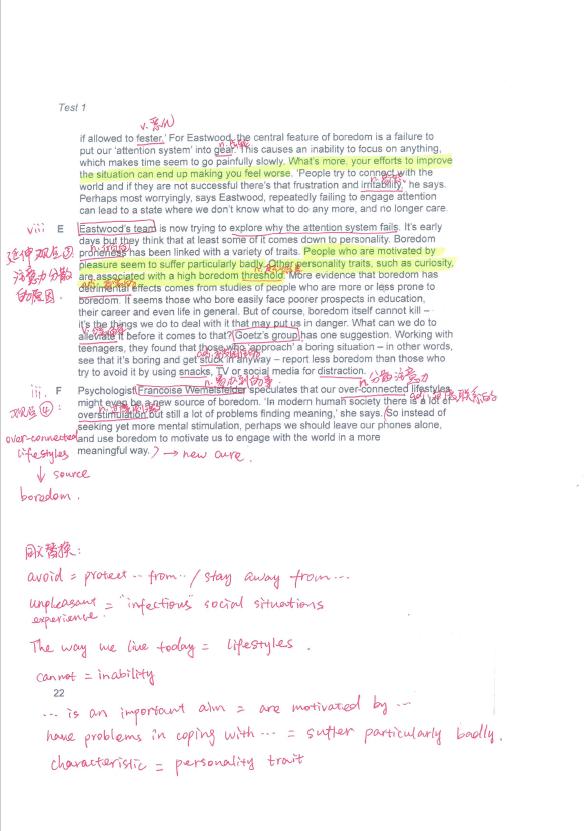 Test 1
v. 恶化
if allowed to fester.' For Eastwood, the central feature of boredom is a failure to
put our 'attention system' into gear. This causes an inability to focus on anything,
which makes time seem to go painfully slowly. What's more, your efforts to improve
the situation can end up making you feel worse. 'People try to connect with the
world and if they are not successful there's that frustration and irritability,' he says.
Perhaps most worryingly, says Eastwood, repeatedly failing to engage attention
can lead to a state where we don't know what to do any more, and no longer care.
viii E Eastwood's team is now trying to explore why the attention system fails. It's early
days but they think that at least some of it comes down to personality. Boredom
proneness has been linked with a variety of traits. People who are motivated by
pleasure seem to suffer particularly badly. Other personality traits, such as curiosity,
are associated with a high boredom threshold. More evidence that boredom has
detrimental effects comes from studies of people who are more or less prone to
boredom. It seems those who bore easily face poorer prospects in education,
their career and even life in general. But of course, boredom itself cannot kill –
it's the things we do to deal with it that may put us in danger. What can we do to
alleviate it before it comes to that? Goetz's group has one suggestion. Working with
teenagers, they found that those who 'approach' a boring situation – in other words,
see that it's boring and get stuck in anyway – report less boredom than those who
try to avoid it by using snacks, TV or social media for distraction.
注意力分散
的原因.
n. 分散注意力
iii. F Psychologist Francoise Wemelsfelder speculates that our over-connected lifestyles
might even be a new source of boredom. 'In modern human society there is a lot of
overstimulation but still a lot of problems finding meaning,' she says. So instead of
seeking yet more mental stimulation, perhaps we should leave our phones alone,
and use boredom to motivate us to engage with the world in a more
meaningful way. → new cure.
over-connected
lifestyles
↓ source
boredom.
同义替换:
avoid = protect ·· from ·· / stay away from ···
unpleasant experience. = "infectious" social situations
The way we live today = lifestyles.
cannot = inability
22
··· is an important aim = are motivated by ···
have problems in coping with ··· = suffer particularly badly.
characteristic = personality trait